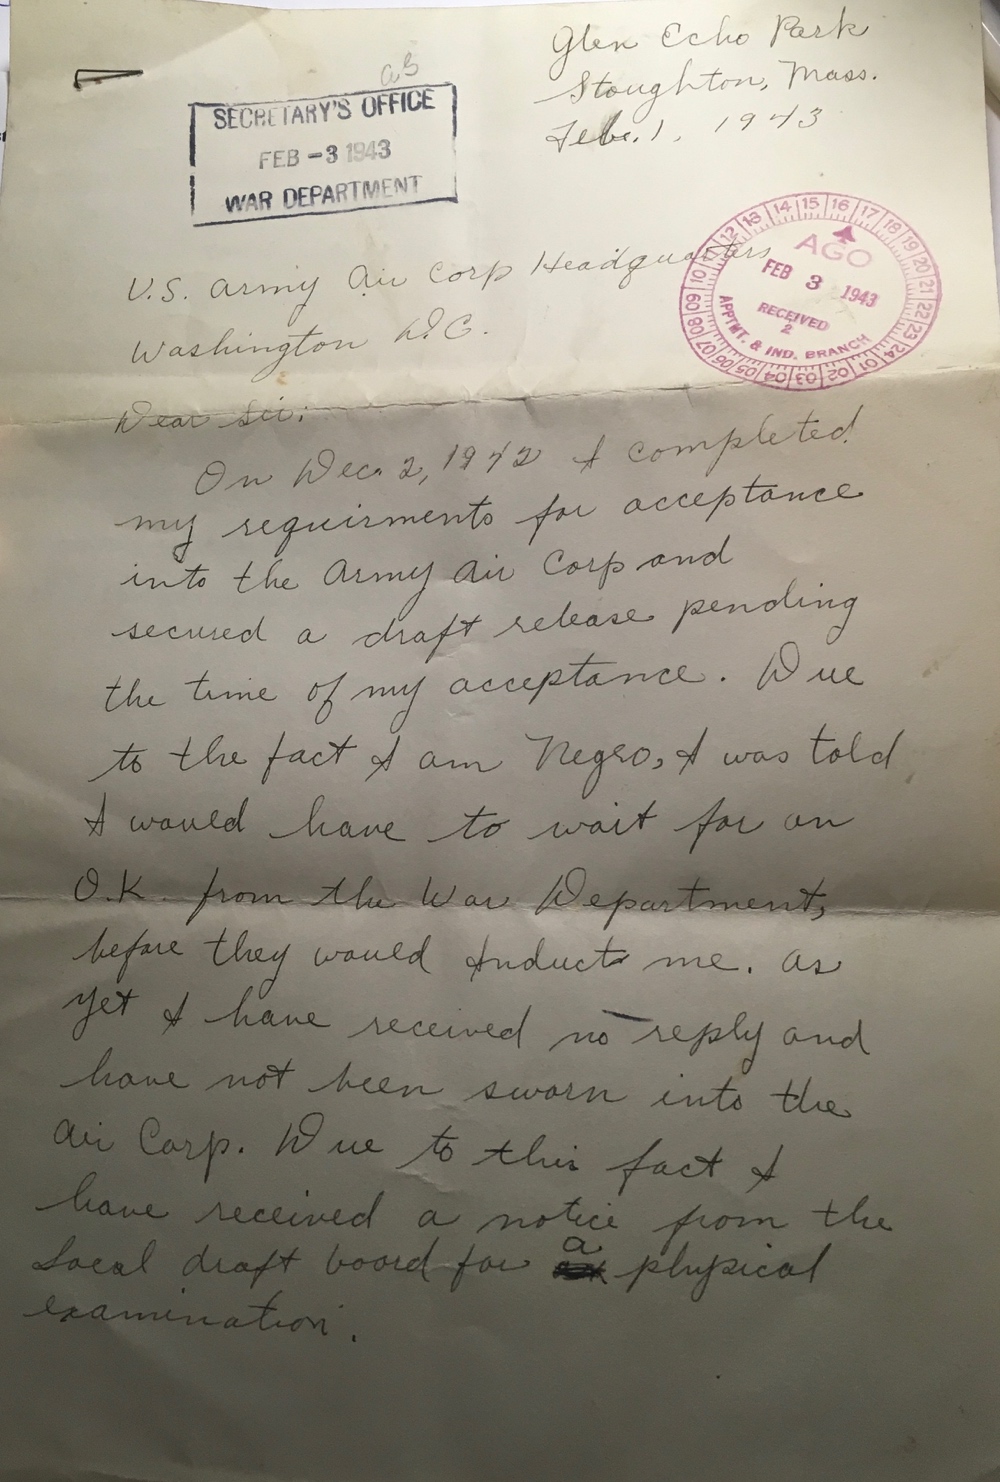 Glen Echo Park
Stoughton, Mass.
Feb. 1, 1943
as
SECRETARY'S OFFICE
FEB -3 1943
WAR DEPARTMENT
AGO
FEB 3 1943
RECEIVED
2
APPTMT. & IND. BRANCH
01 02 03 04 05 06 07 08 09 10 12 13 14 15 16 17 18 19 20 21 22 23 24
U.S. Army Air Corp Headquarters
Washington D.C.
Dear Sir:
On Dec. 2, 1942 I completed
my requirments for acceptance
into the Army Air Corp and
secured a draft release pending
the time of my acceptance. Due
to the fact I am Negro, I was told
I would have to wait for an
O.K. from the War Department,
before they would Induct me. As
yet I have received no reply and
have not been sworn into the
Air Corp. Due to this fact I
have received a notice from the
Local draft board for a physical
examination.